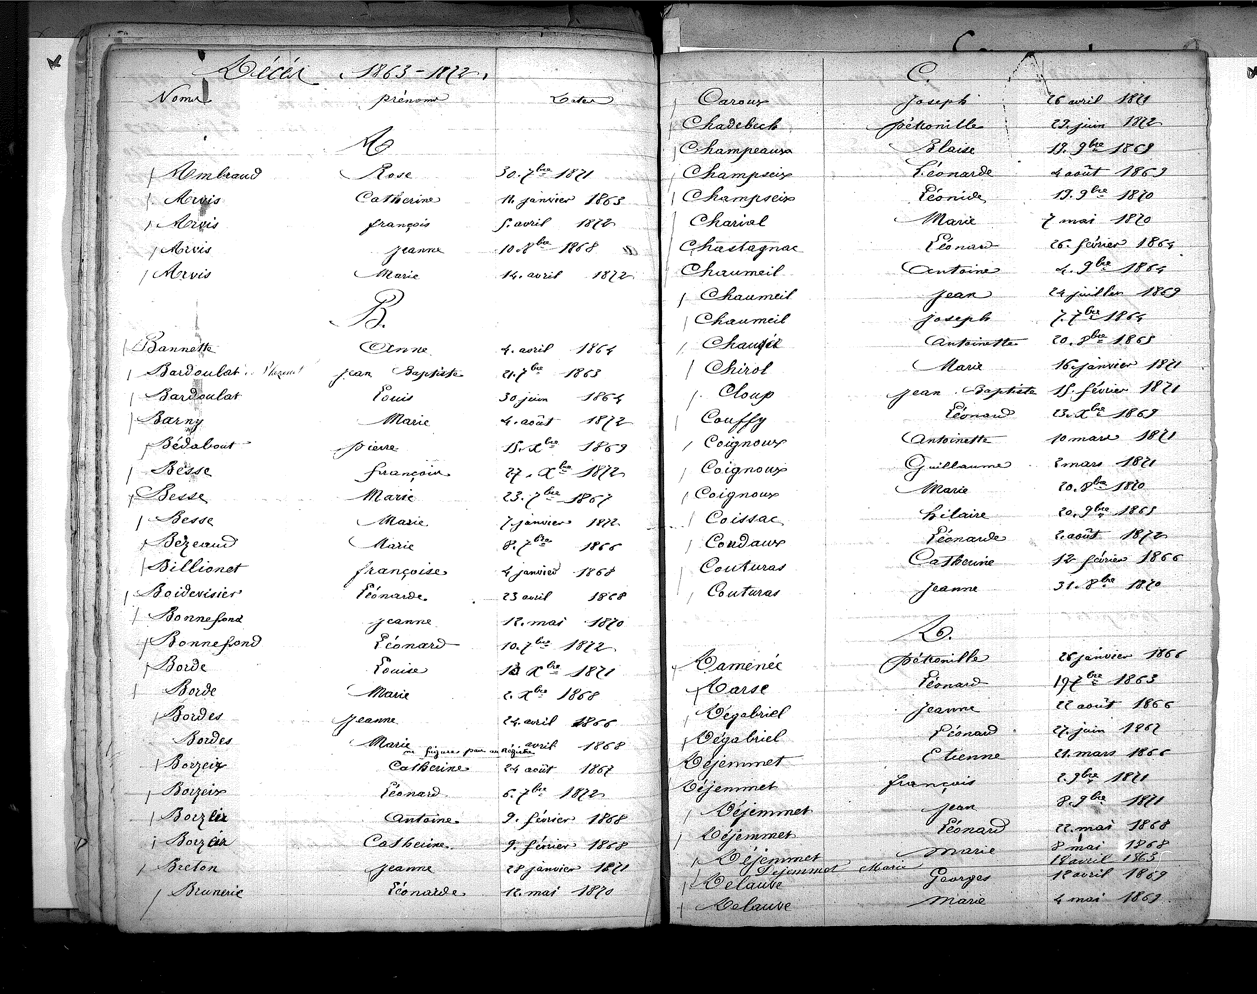 Décès 1863-1872.
Noms prénoms Dates
A
Ambraud Rose 30. 7bre 1871
Arvis Catherine 11. janvier 1863
Arvis françois 5. avril 1872
Arvis jeanne 10. 8bre 1868
Arvis Marie 14. avril 1872
B.
Bannette Anne 4. avril 1864
Bardoulat jean Baptiste 21. 7bre 1863
Bardoulat Louis 30 juin 1864
Barny Marie 4. août 1872
Bédabout pierre 15. Xbre 1869
Besse françoise 27. Xbre 1872
Besse Marie 23. 7bre 1867
Besse Marie 7 janvier 1872
Bezeaud Marie 8. 7bre 1866
Billionet françoise 4 janvier 1868
Boidevisier Léonarde 23 avril 1868
Bonnefond jeanne 12. mai 1870
Bonnefond Léonard 10. 7bre 1872
Borde Louise Xbre 1871
Borde Marie 2. Xbre 1868
Bordes jeanne 24. avril 1866
Bordes Marie avril 1868
ne figure pas au Registre
Borzeix Catherine 24 août 1867
Borzeix Léonard 6. 7bre 1872
Borzeix Antoine 9. février 1868
Borzeix Catherine 9. février 1868
Breton jeanne 28 janvier 1871
Brunerie Léonarde 12. mai 1870
C.
Caroux joseph 26 avril 1871
Chadebech pétronille 23. juin 1872
Champeaux Blaise 13. 9bre 1869
Champseix Léonarde 4 août 1869
Champseix Léonide 13. 9bre 1870
Charial Marie 7 mai 1870
Chastagnac Léonard 26. février 1864
Chaumeil Antoine 4. 9bre 1864
Chaumeil jean 24 juillet 1869
Chaumeil joseph 7. 7bre 1864
Chauzit Antoinette 20. 8bre 1863
Chirol Marie 16 janvier 1871
Cloup jean Baptiste 15. février 1871
Couffy Léonard 13. Xbre 1869
Coignoux Antoinette 10 mars 1871
Coignoux Guillaume 2 mars 1871
Coignoux Marie 20. 8bre 1870
Coissac hilaire 20. 9bre 1863
Coudaux Léonarde 2. août 1872
Couturas Catherine 12 février 1866
Couturas jeanne 31. 8bre 1870
D.
Damenée pétronille 26 janvier 1866
Darse Léonard 19 7bre 1863
Dégabriel jeanne 22 août 1866
Dégabriel Léonard 27. juin 1867
Déjemmet Etienne 21. mars 1866
Déjemmet françois 2. 9bre 1871
Déjemmet jean 8. 9bre 1871
Déjemmet Léonard 22. mai 1868
Déjemmet marie 8 mai 1868
Dejemmet Marie 18 avril 1863
Delauve Georges 12 avril 1869
Delauve Marie 4 mai 1869